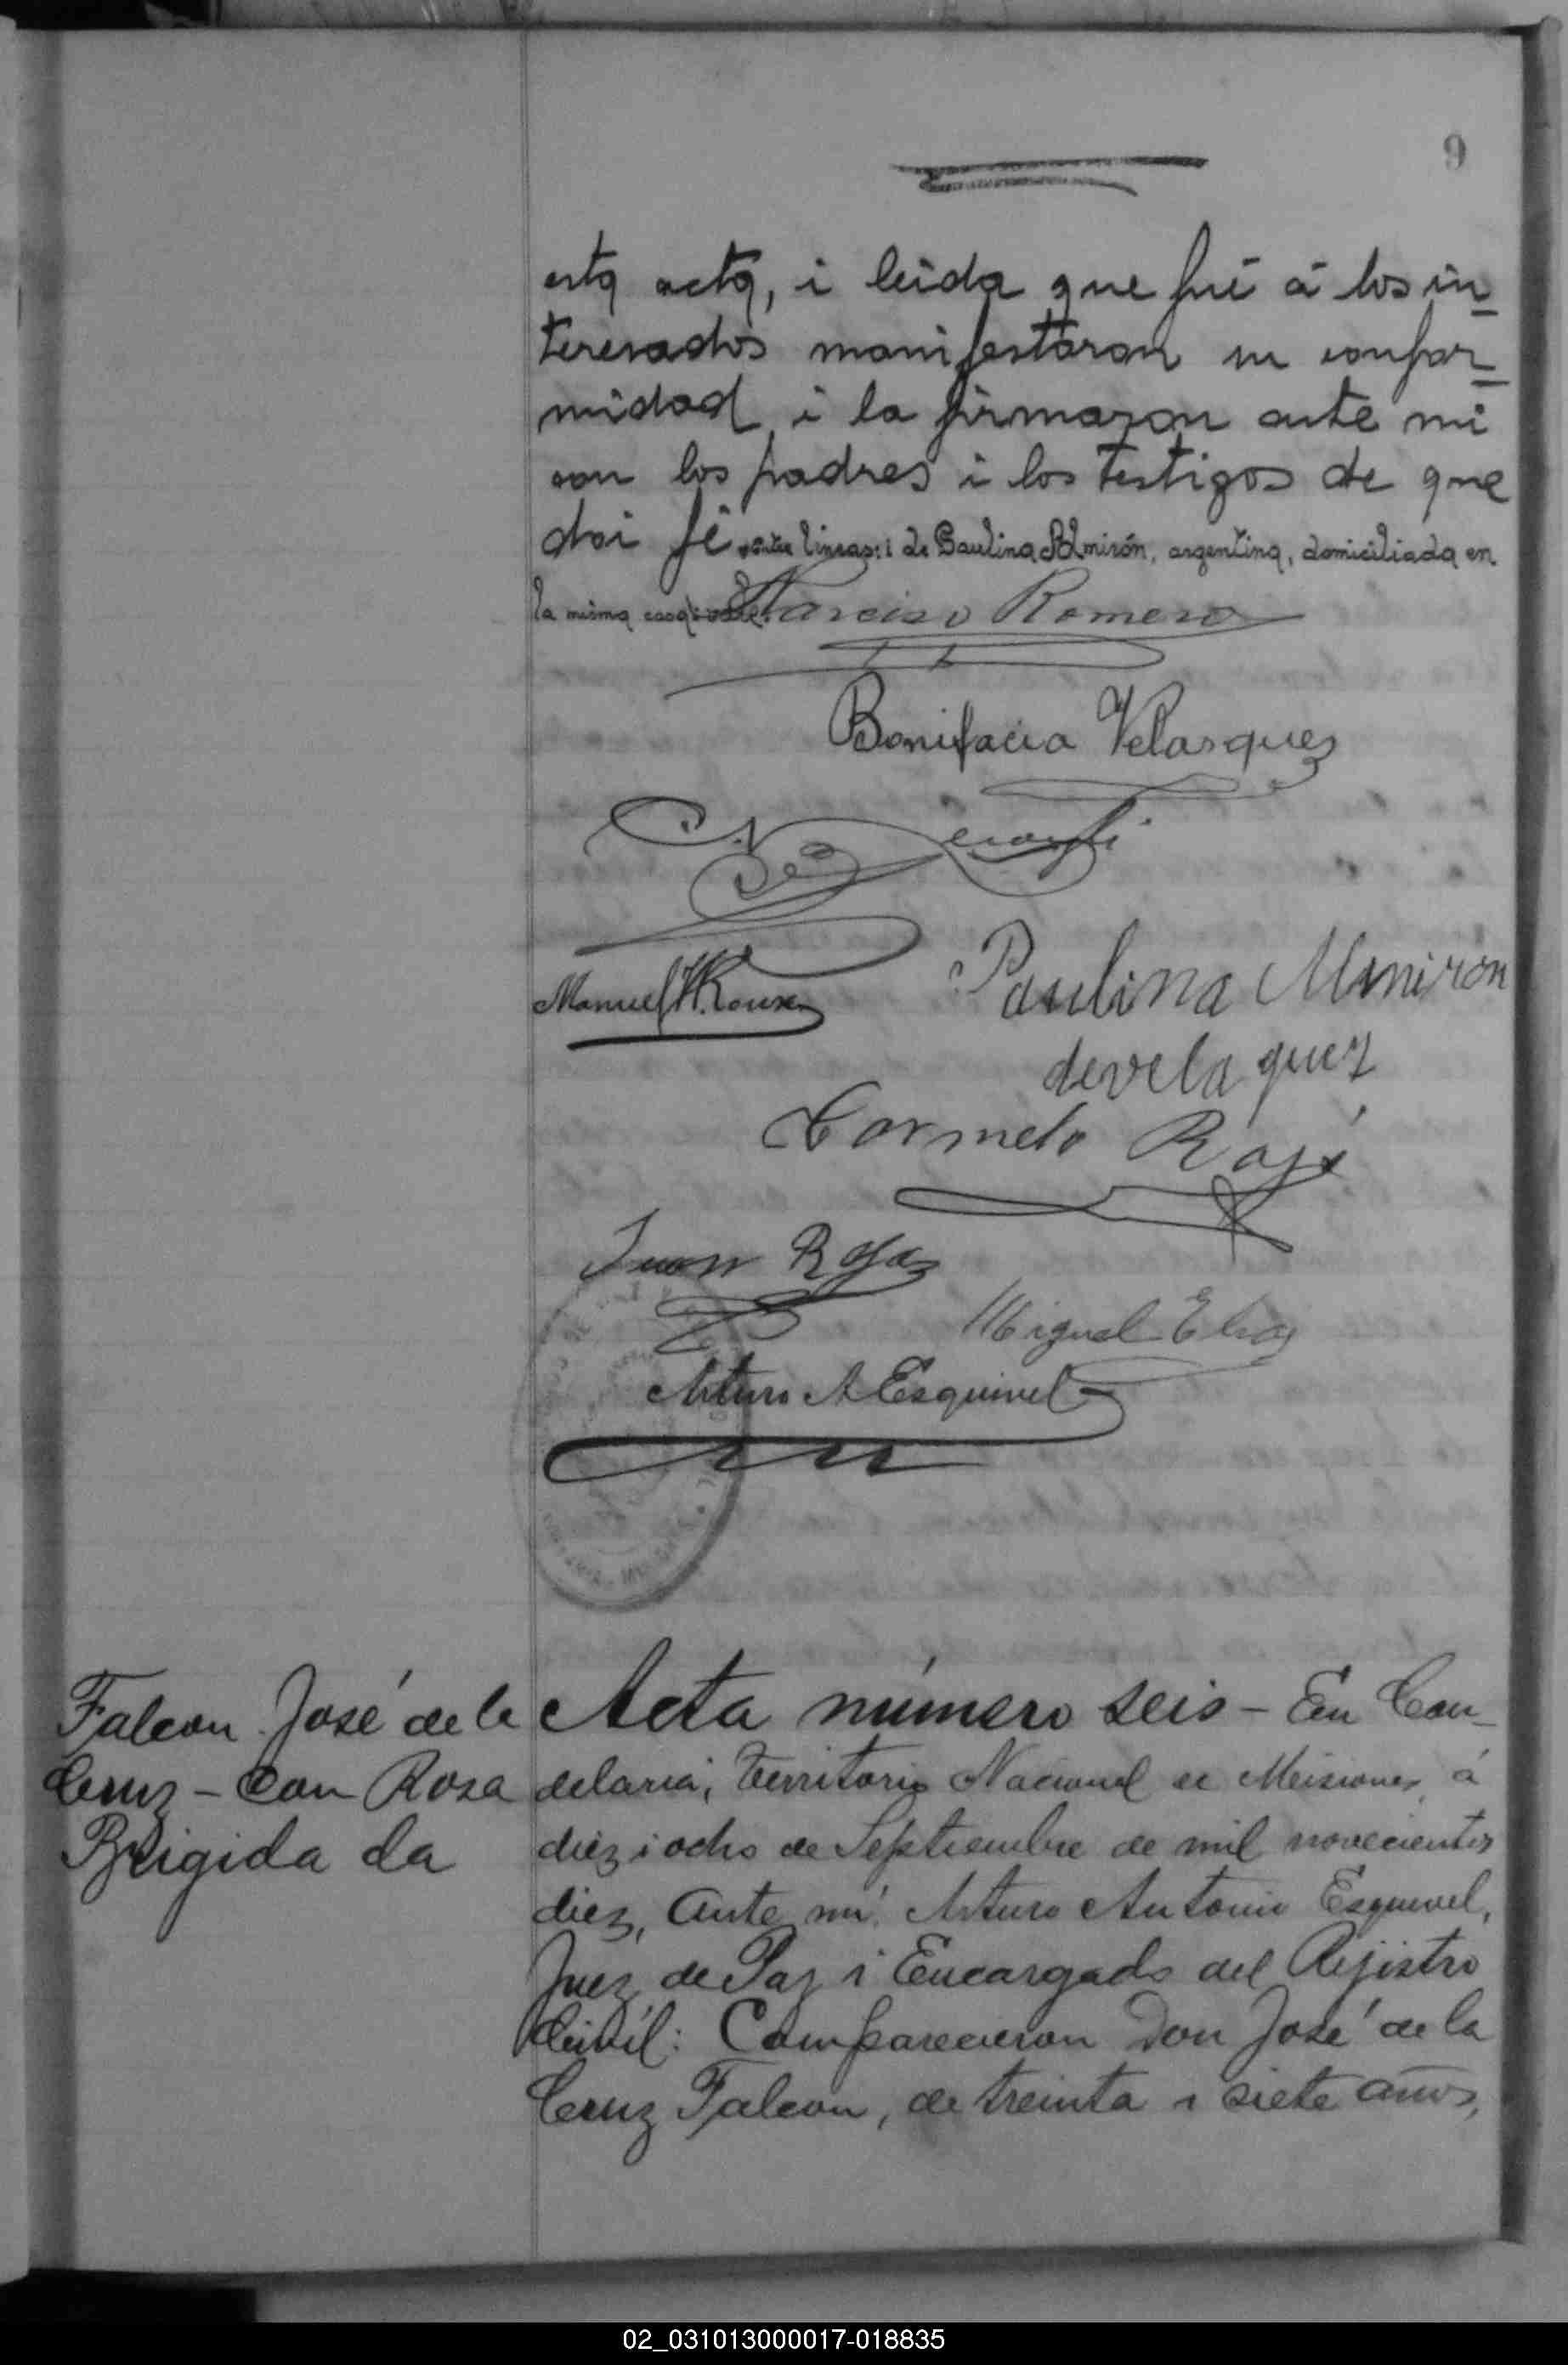 9
esta acta, i leida que fué á los in-
teresados manifestaron su confor-
midad, i la firmaron ante mi
con los padres i los testigos de que
doi fé entre lineas: i de Paulina Almirón, argentina, domiciliada en
la misma casa: vale. Narciso Romero
Bonifacia Velasquez
Manuel Paulina Almiron
de velaquez
Carmelo Rojas
Juan Rojas
Miguel
Arturo A Esquivel
Falcon José de la
Cruz - Con Rosa
Brigida da
Acta número seis - En Can-
delaria, Territorio Nacional de Misiones, á
diez i ocho de Septiembre de mil novecientos
diez, ante mí Arturo Antonio Esquivel,
Juez de Paz i Encargado del Rejistro
Civil: Comparecieron Don José de la
Cruz Falcon, de treinta i siete años,
02_031013000017-018835